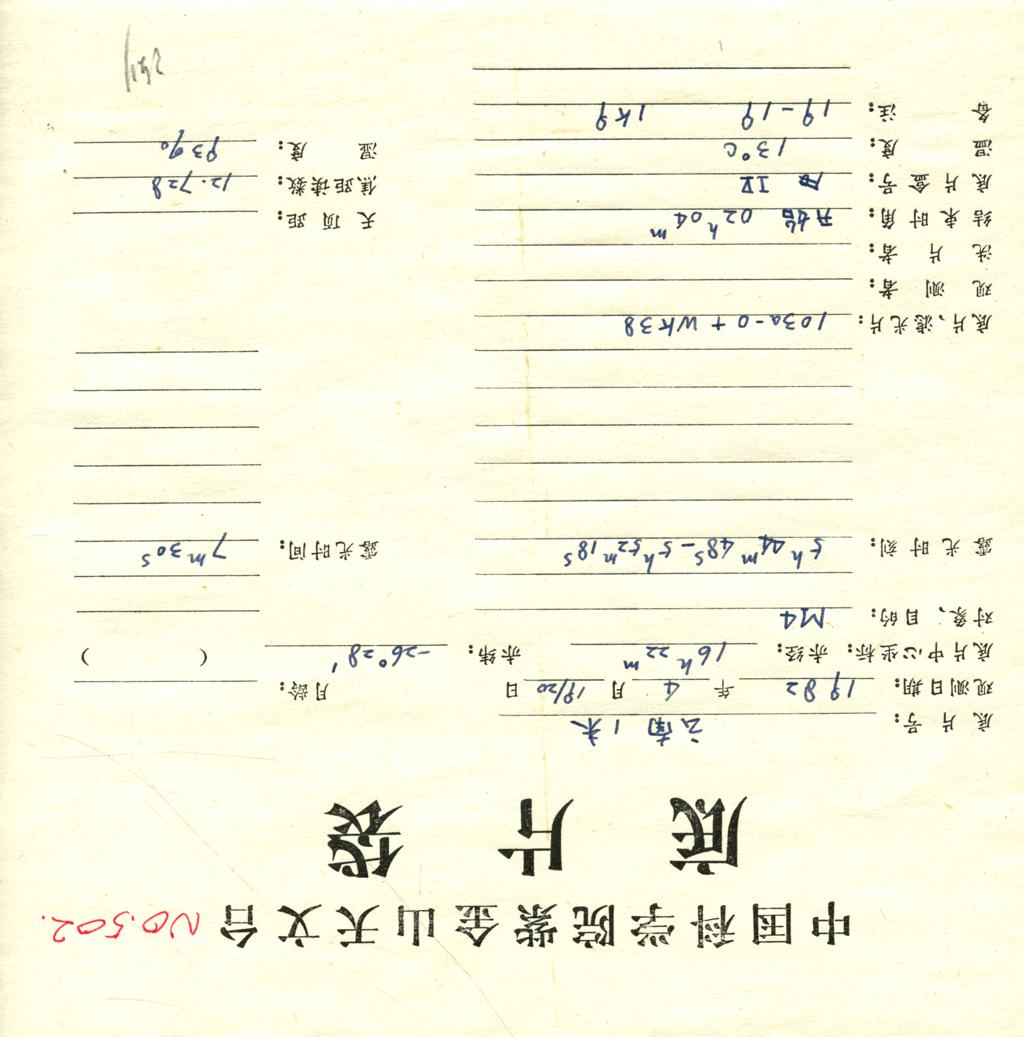 中国科学院紫金山天文台 NO.502.
底片袋
底片号: 云南1米
观测日期: 1982 年 4 月 19/20 日 月龄:
底片中心坐标: 赤经: 16h 22m 赤纬: -26°28′ ( )
对象、目的: M4
露光时刻: 5h 44m 48s - 5h 52m 18s 露光时间: 7m 30s
底片、滤光片: 103a-O + WK38
观测者:
洗片者:
结束时角: 开始 02h 04m 天顶距:
底片盒号: IV 焦距读数: 12.728
温度: 13°C 湿度: 93%
备注: 19-19 1K9